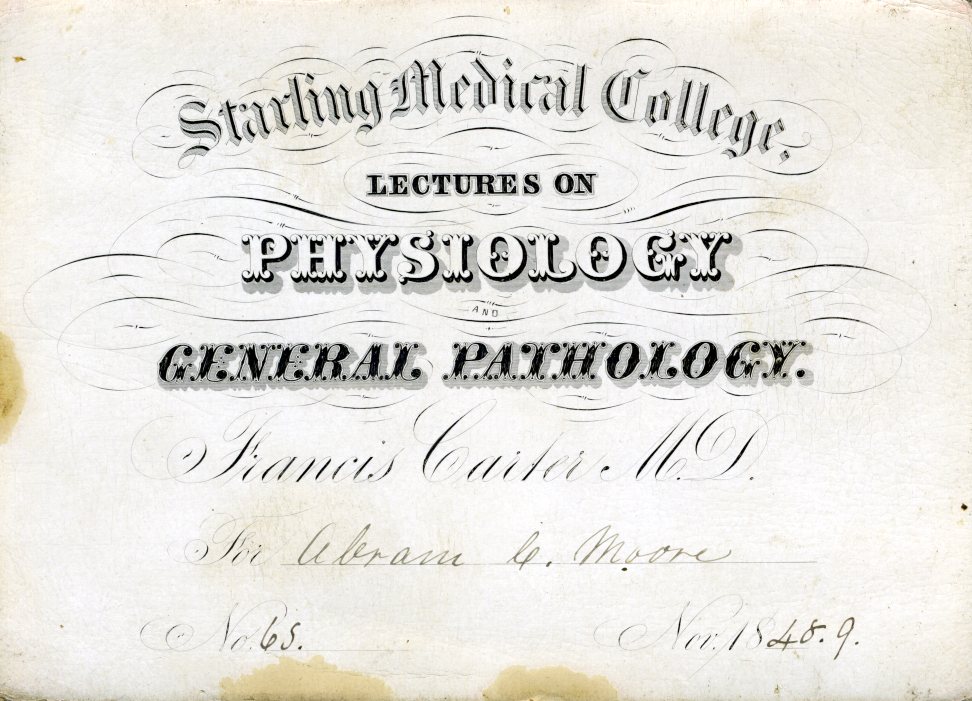 Starling Medical College.
LECTURES ON
PHYSIOLOGY
AND
GENERAL PATHOLOGY.
Francis Carter M.D.
For Abram C. Moore
No. 65. Nov. 1848.9.